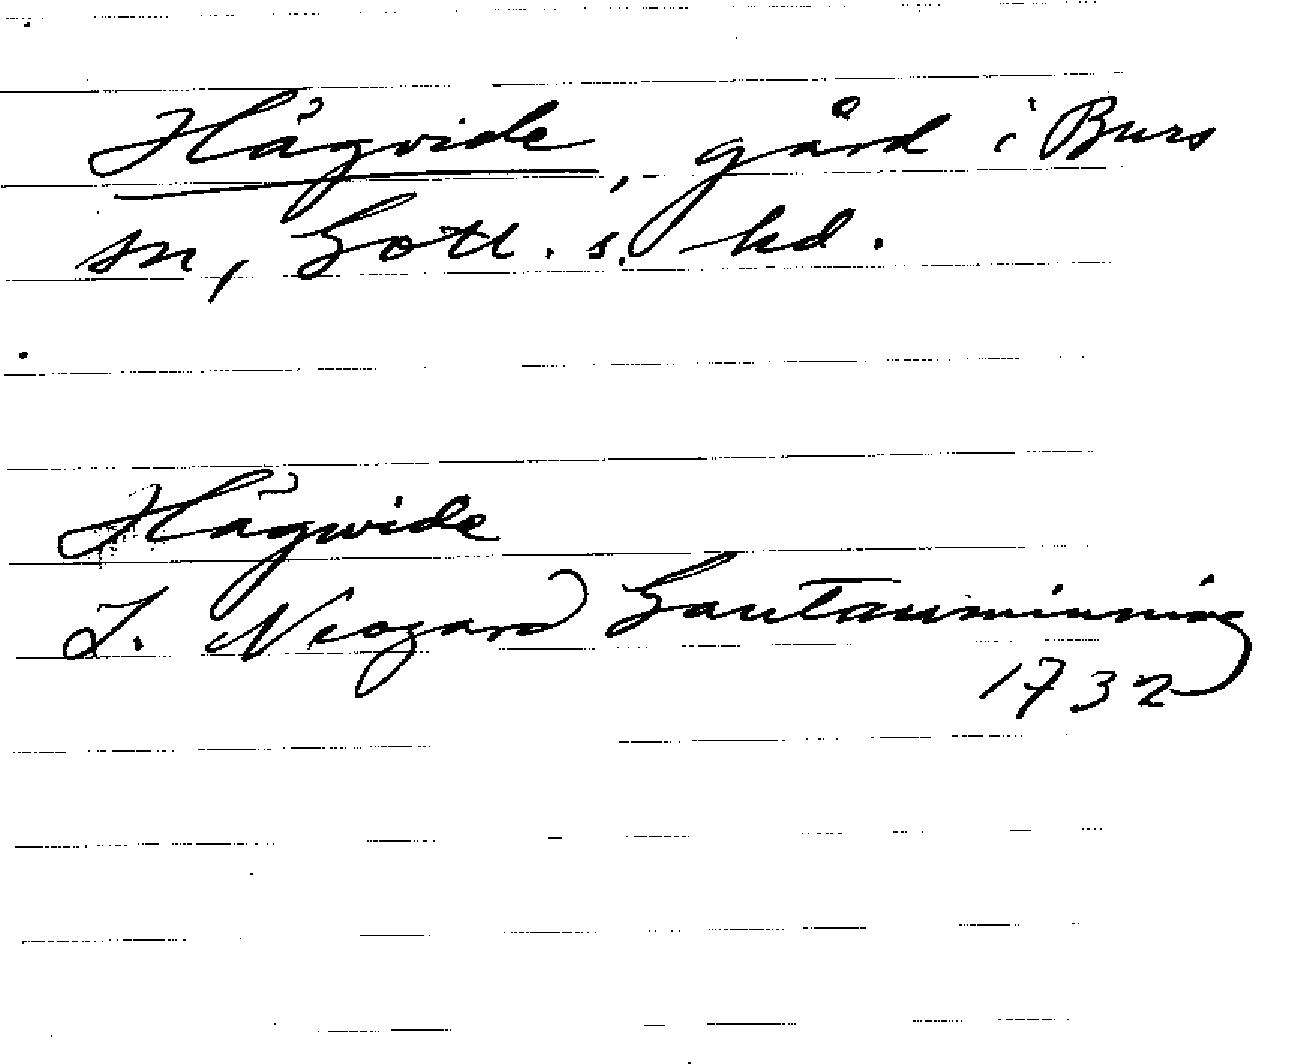 Hågvide, gård i Burs
sn, Gotl. s. hd.
Hågwide
J. Neogard Gautauminning
1732